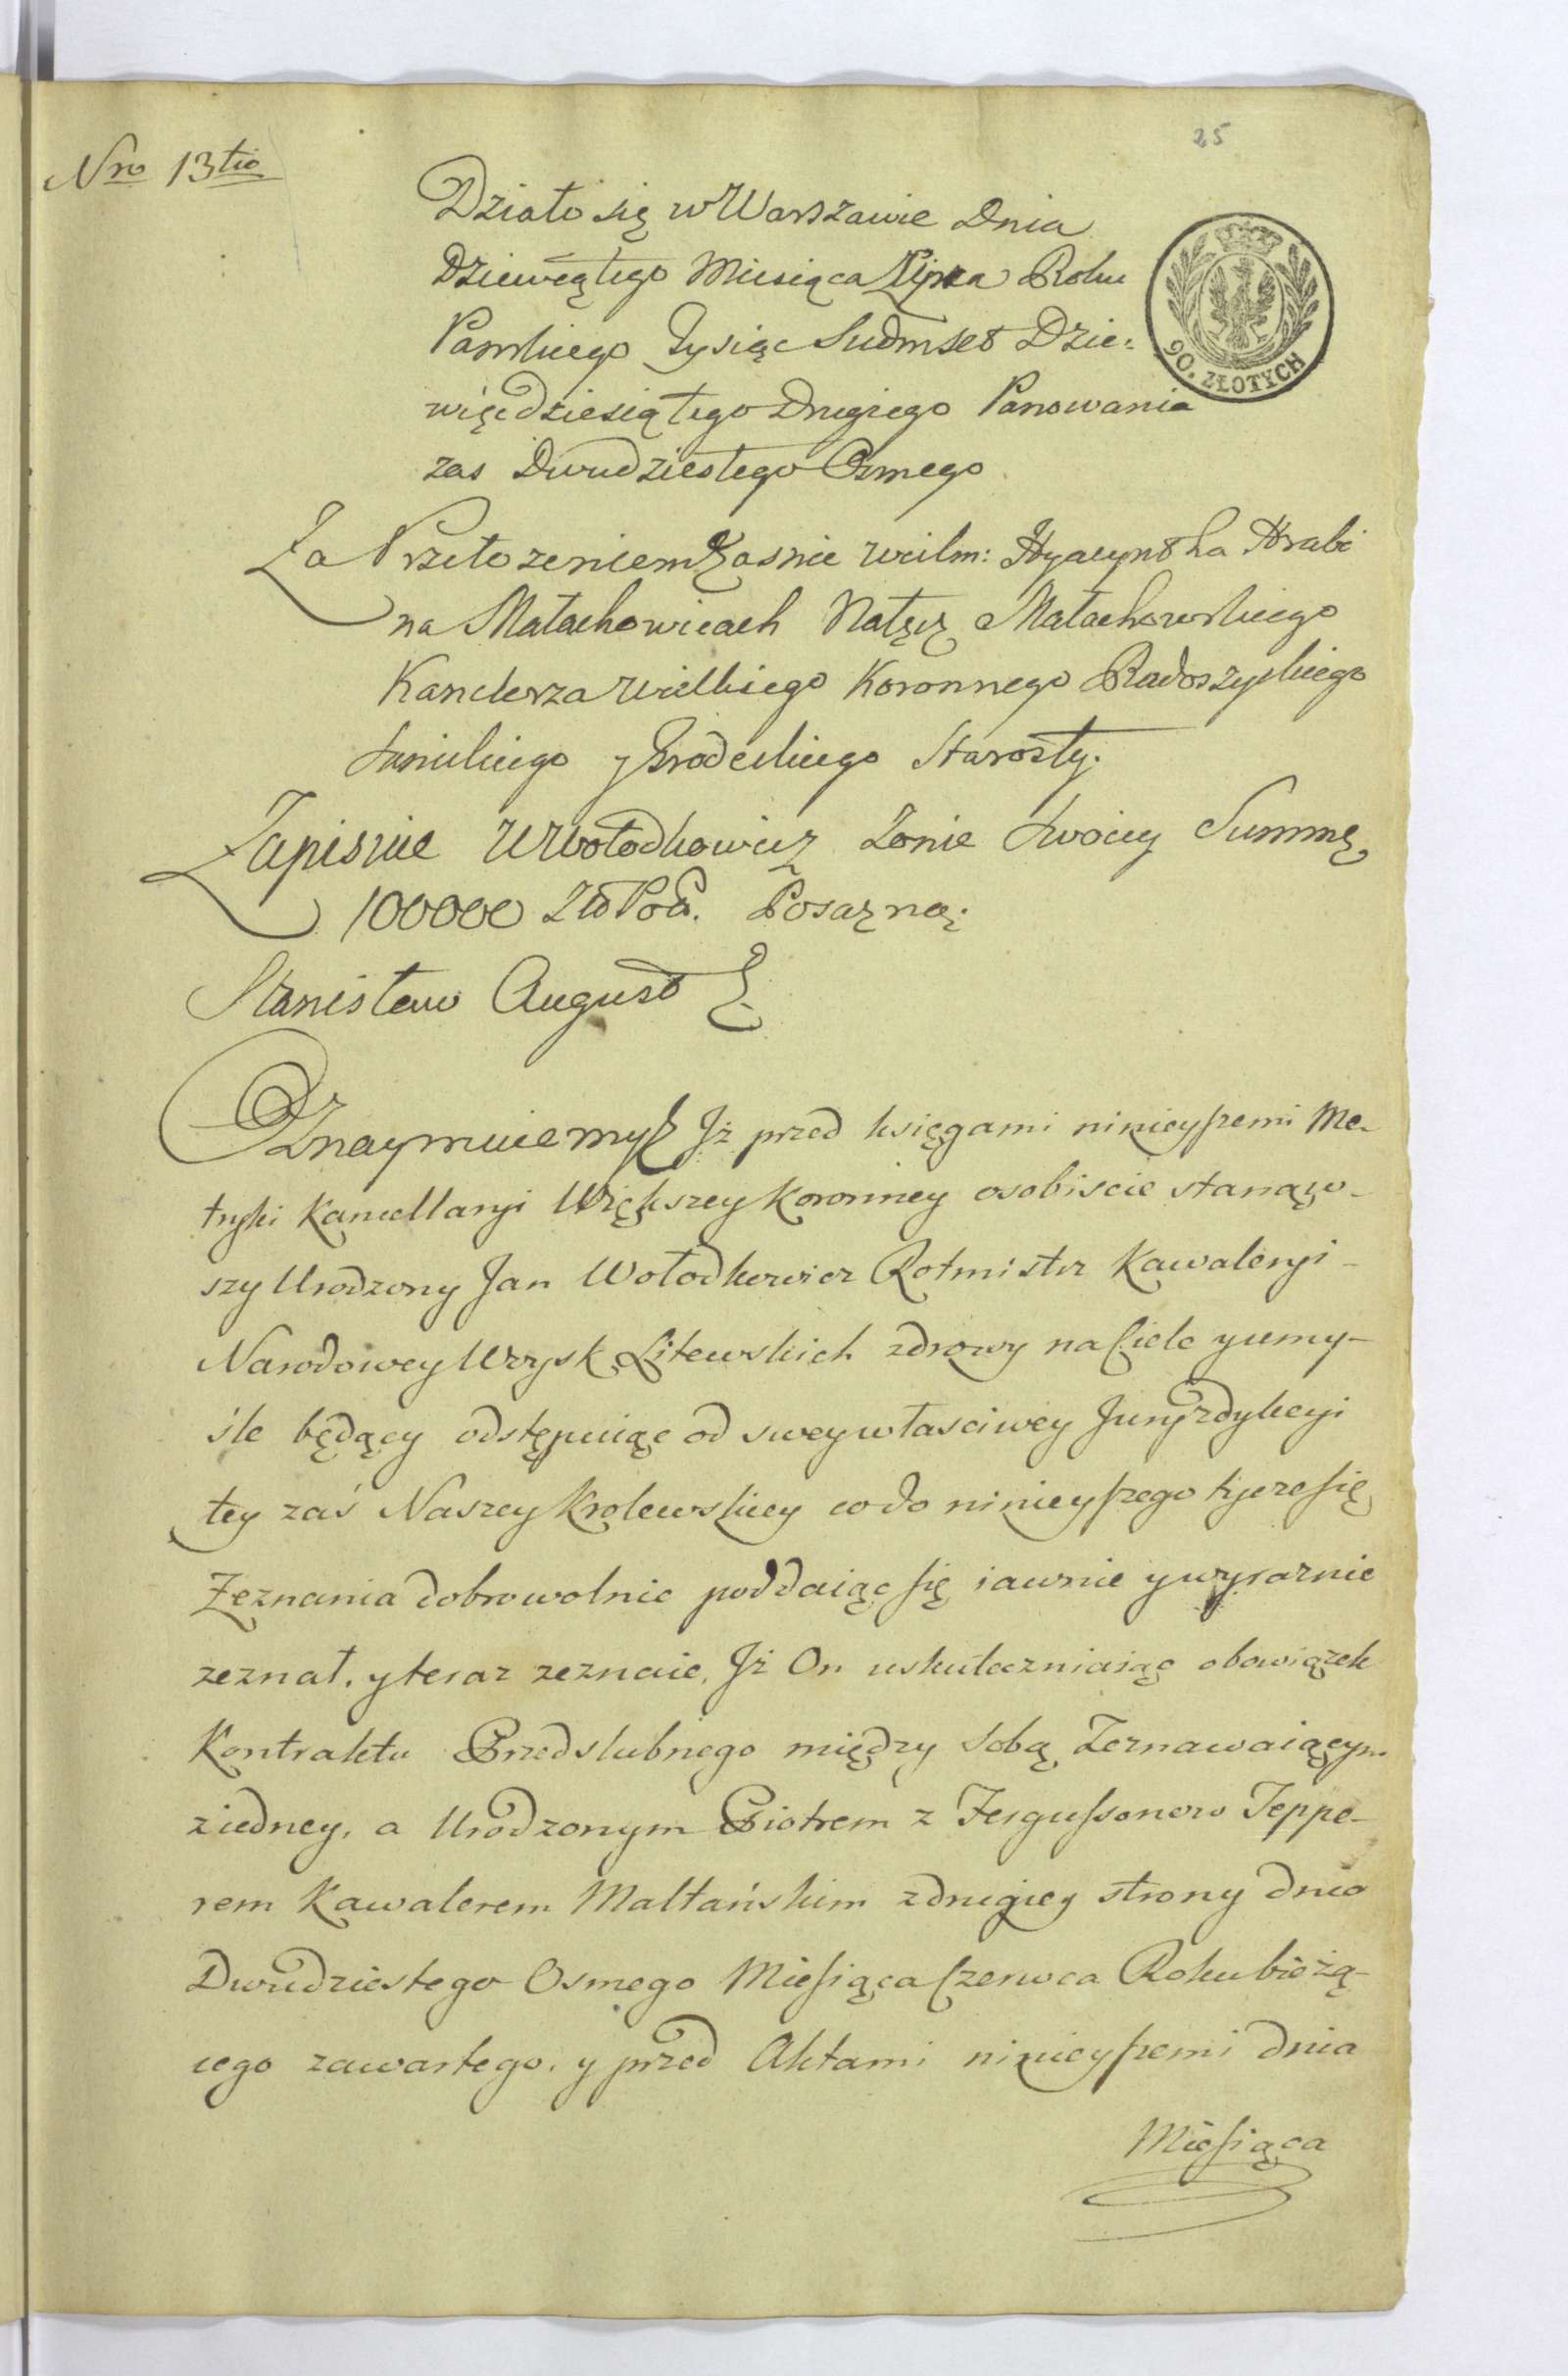 25
Nro 13tio
Działo się w Warszawie Dnia
Dziewiątego Miesiąca Lipca Roku
Pańskiego Tysiąc Siedmset Dzie:
więdziesiątego Drugiego Panowania
zas Dwudziestego Osmego
90. ZŁOTYCH
Za Przełozeniem Jasnie Wielm: Hyacyntha Hrabi
na Małachowicach Nałęcz Małachowskiego
Kanclerza Wielkiego Koronnego Radoszyckiego
Sanickiego y Grodeckiego Starosty.
Zapisuie U Wołodkowicz Zonie Swoiey Summę
100000 Zło Pol. Posazną.
Stanisław August
Oznaymuiemy Jż przed księgami ninieyszemi Me-
tryki Kancellaryi Większey Koronney osobiscie stanąw-
szy Urodzony Jan Wołodkowicz Rotmistrz Kawaleryi-
Narodowey Woysk Litewskich zdrowy na Ciele y umy-
śle będący odstępuiąc od swey własciwey Juryzdykcyi
tey zaś Naszey Krolewskiey co do ninieyszego tycze się
Zeznania dobrowolnie poddaiąc się iawnie y wyraznie
zeznał, y teraz zeznaie, Jż On uskuteczniaiąc obowiązek
Kontraktu Przedslubnego między Sobą Zeznawaiącym
z iedney, a Urodzonym Piotrem z Fergussonow Teppe-
rem Kawalerem Maltańskim z drugiey strony dnia
Dwudziestego Osmego Miesiąca Czerwca Roku bieżą-
cego zawartego, y przed Aktami ninieyszemi dnia
Miesiąca